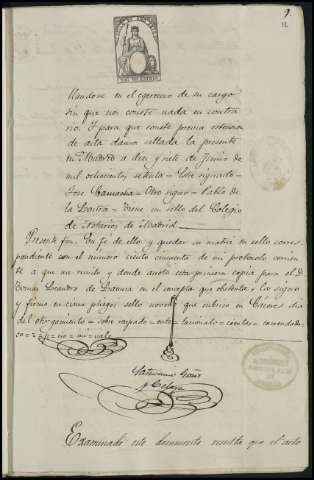 9.
12
llandose en el egercicio de su cargo
sin que nos conste nada en contra
rio. Y para que conste previa
de acta damos sellada la presente
en Madrid a diez y siete de Junio de
mil ochocientos setenta = Esta signado =
José Camacho = Otro signo = Pablo de
la Lastra = Tiene un sello del Colegio
de Notarios de Madrid =
Presente fui. En fe de ello y quedar su matriz en sello corres
pondiente con el numero ciento cincuenta de mi protocolo corrien
te a que me remito y donde anoto esta primera copia para el D.
Tomás Leandro de en el concepto que obstenta; lo signo
y firmo en cinco pliegos sello noveno que rubrico en Caceres dia
del otorgamiento = sobre raspado =
Examinado este documento resulta que el acto